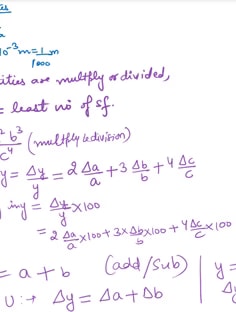 10⁻³m = 1/1000 m
are multiply or divided,
= least no of sf.
b³/c⁴ (multiply & division)
y = Δy/y = 2 Δa/a + 3 Δb/b + 4 Δc/c
in y = Δy/y × 100
= 2 Δa/a × 100 + 3 × Δb/b × 100 + 4 Δc/c × 100
= a + b (add/sub) y =
U :→ Δy = Δa + Δb Δy